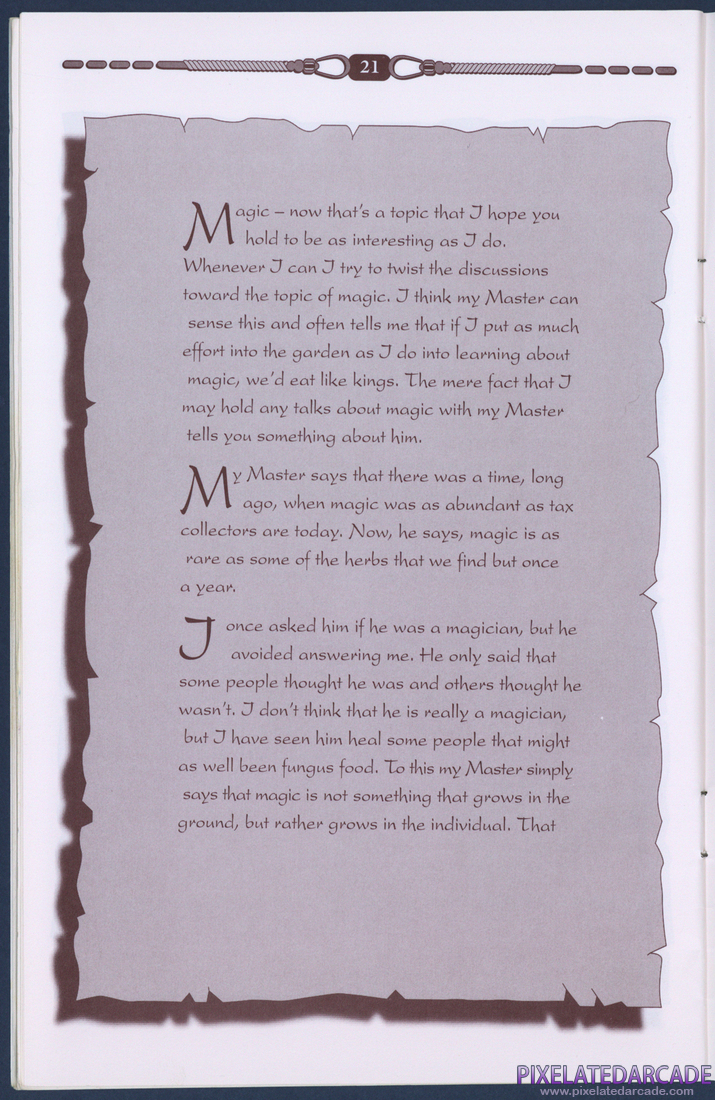 21
Magic – now that's a topic that I hope you
hold to be as interesting as I do.
Whenever I can I try to twist the discussions
toward the topic of magic. I think my Master can
sense this and often tells me that if I put as much
effort into the garden as I do into learning about
magic, we'd eat like kings. The mere fact that I
may hold any talks about magic with my Master
tells you something about him.
My Master says that there was a time, long
ago, when magic was as abundant as tax
collectors are today. Now, he says, magic is as
rare as some of the herbs that we find but once
a year.
I once asked him if he was a magician, but he
avoided answering me. He only said that
some people thought he was and others thought he
wasn't. I don't think that he is really a magician,
but I have seen him heal some people that might
as well been fungus food. To this my Master simply
says that magic is not something that grows in the
ground, but rather grows in the individual. That
PIXELATEDARCADE
www.pixelatedarcade.com